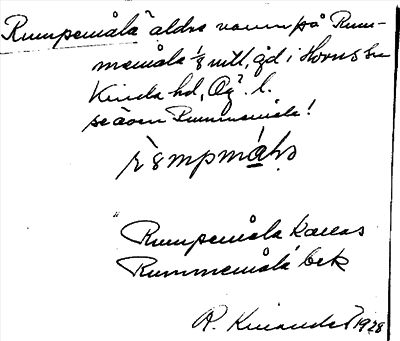 Rumpemåla äldre namn på Rum-
memåla 1/8 mtl, gd i Horns sn
Kinda hd, Ög. l.
se även Rummemåla!
"Rumpemåla kallas
Rummemåla bek
R. Kinander 1928